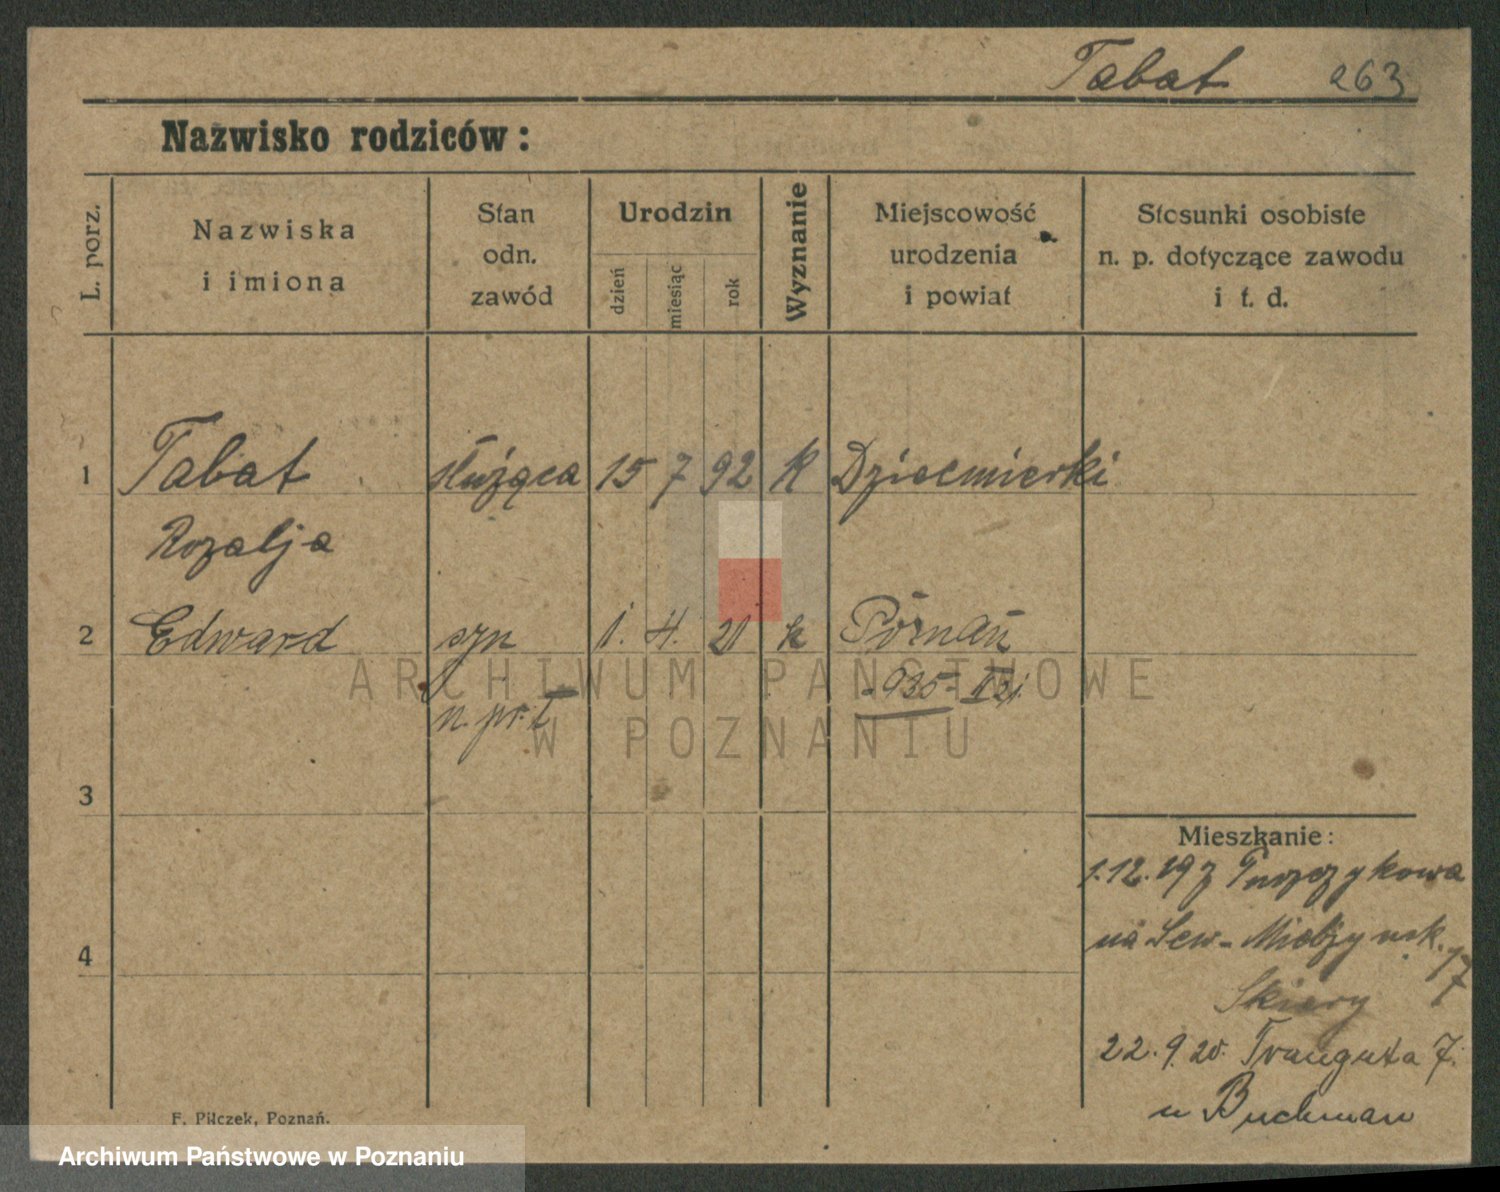 Tabat 263
Nazwisko rodziców:
L. porz.
Nazwiska
i imiona
Stan
odn.
zawód
Urodzin
dzień
miesiąc
rok
Wyznanie
Miejscowość
urodzenia
i powiat
Stosunki osobiste
n. p. dotyczące zawodu
i t. d.
1 Tabat służąca 15 7 92 K Dziecmierki
Rozalja
2 Edward syn 1. 4. 21 k Poznań
935
n. pr.
3
4
Mieszkanie:
1.12.19 z
na Sew-Mielżyńsk. 17
22.9.20. Trauguta 7.
u Buchman
F. Pilczek, Poznań.
ARCHIWUM PAŃSTWOWE
W POZNANIU
Archiwum Państwowe w Poznaniu